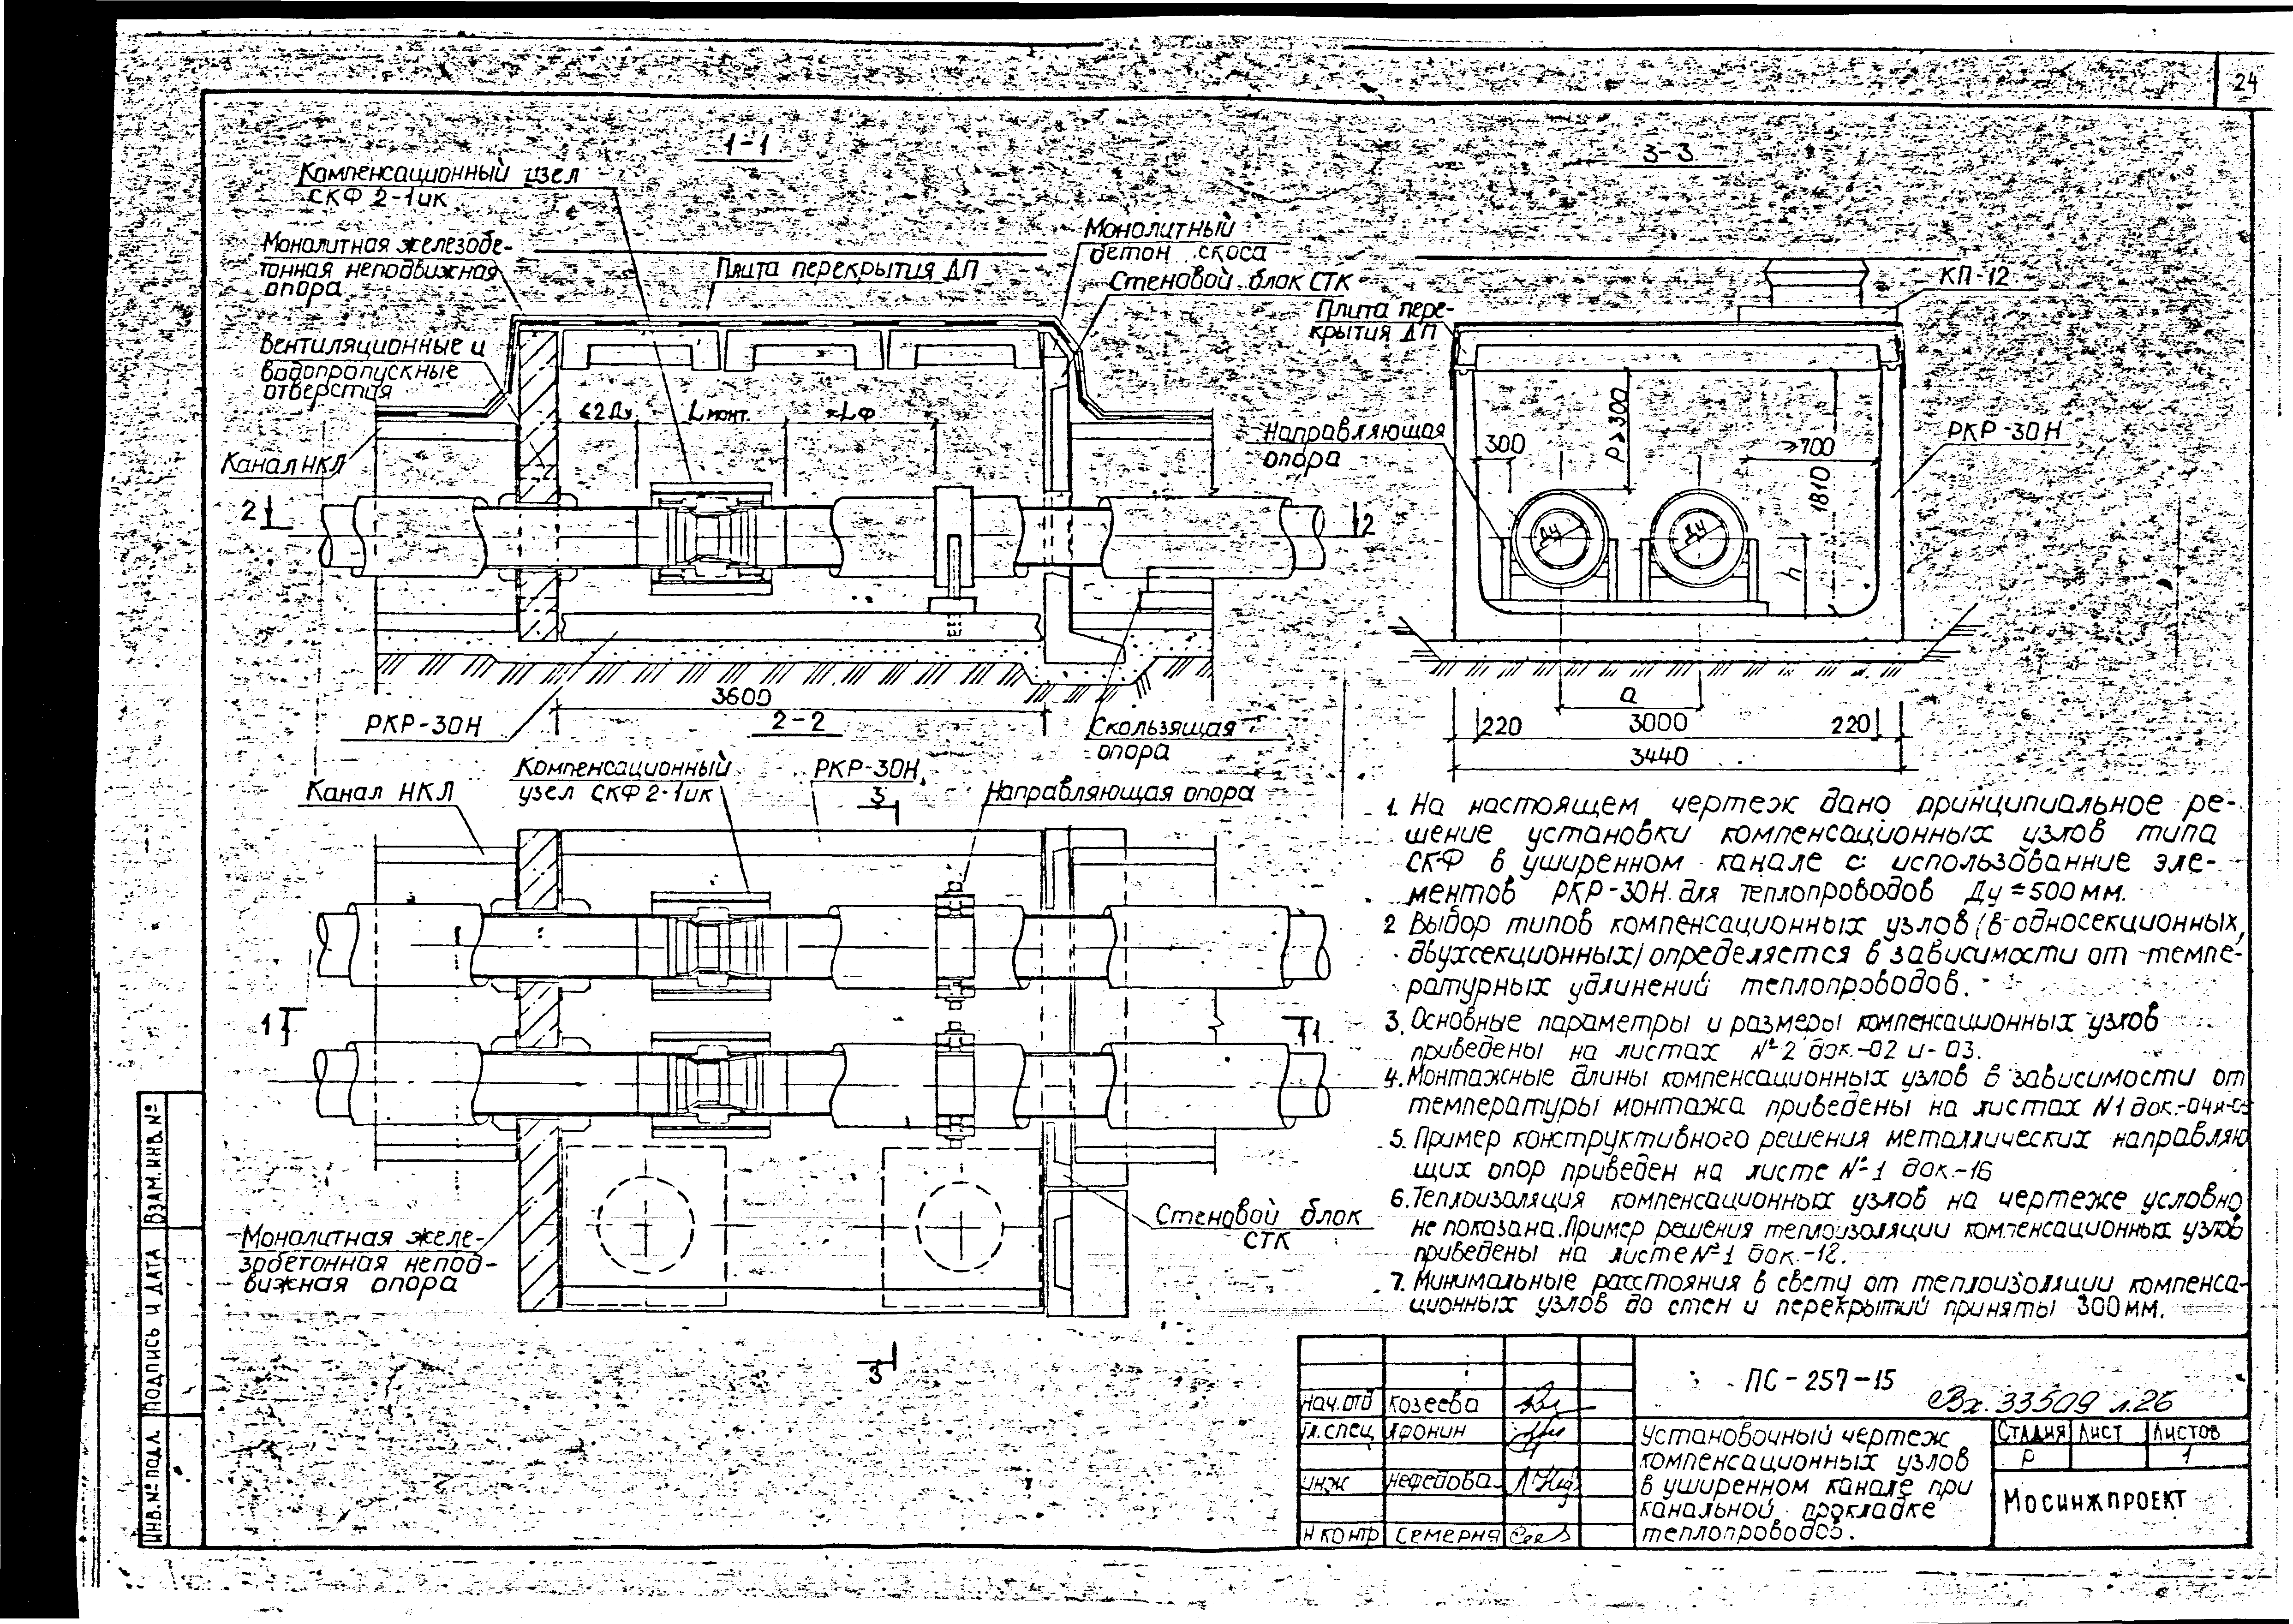 24
1-1
3-3
Компенсационный узел
СКФ 2-1ик
Монолитная железобе-
тонная неподвижная
опора
Плита перекрытия ДП
Монолитный
бетон скоса
Стеновой блок СТК
Вентиляционные и
водопропускные
отверстия
≤2Ду
Lмонт.
≈Lф
Канал НКЛ
2
2
РКР-30Н
3600
Скользящая
опора
КП-12
Плита пере-
крытия ДП
Направляющая
опора
300
P≥300
≥700
1810
РКР-30Н
Ду
Ду
h
а
220
3000
220
3440
2-2
Канал НКЛ
Компенсационный
узел СКФ 2-1ик
РКР-30Н
3
Направляющая опора
1
1
Монолитная желе-
зобетонная непод-
вижная опора
Стеновой блок
СТК
3
1. На настоящем чертеж дано принципиальное ре-
шение установки компенсационных узлов типа
СКФ в уширенном канале с использованние эле-
ментов РКР-30Н для теплопроводов Ду=500мм.
2 Выбор типов компенсационных узлов (в односекционных,
двухсекционных) определяется в зависимости от темпе-
ратурных удлинений теплопроводов.
3. Основные параметры и размеры компенсационных узлов
приведены на листах №2 док.-02 и-03.
4. Монтажные длины компенсационных узлов в зависимости от
температуры монтажа приведены на листах N1 док.-04и-05
5. Пример конструктивного решения металлических направляю
щих опор приведен на листе №1 док.-16
6. Теплоизоляция компенсационных узлов на чертеже условно
не показана. Пример решения теплоизоляции компенсационных узлов
приведены на листе №1 док.-12.
7. Минимальные расстояния в свету от теплоизоляции компенса-
ционных узлов до стен и перекрытий приняты 300мм.
ПС-257-15
Вх. 33509 л.26
Нач.отд Козеева
Гл.спец Афонин
инж Нефедова
Н контр Семерня
Установочный чертеж
компенсационных узлов
в уширенном канале при
канальной прокладке
теплопроводов.
Стадия Лист Листов
Р 1
Мосинжпроект
Инв.№ подл. Подпись и дата Взам.инв.№